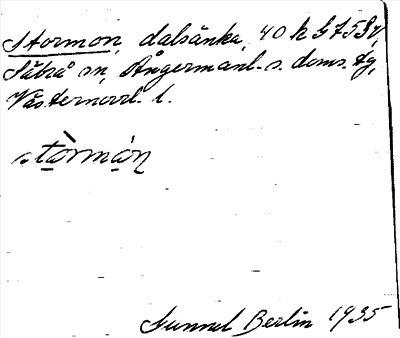 Stormon, dalsänka, 40 h G7 5 Sv,
Säbrå sn, Ångermanl. s. doms. tg,
Västernorrl. l.
stòrmón
Gunnel Berlin 1935